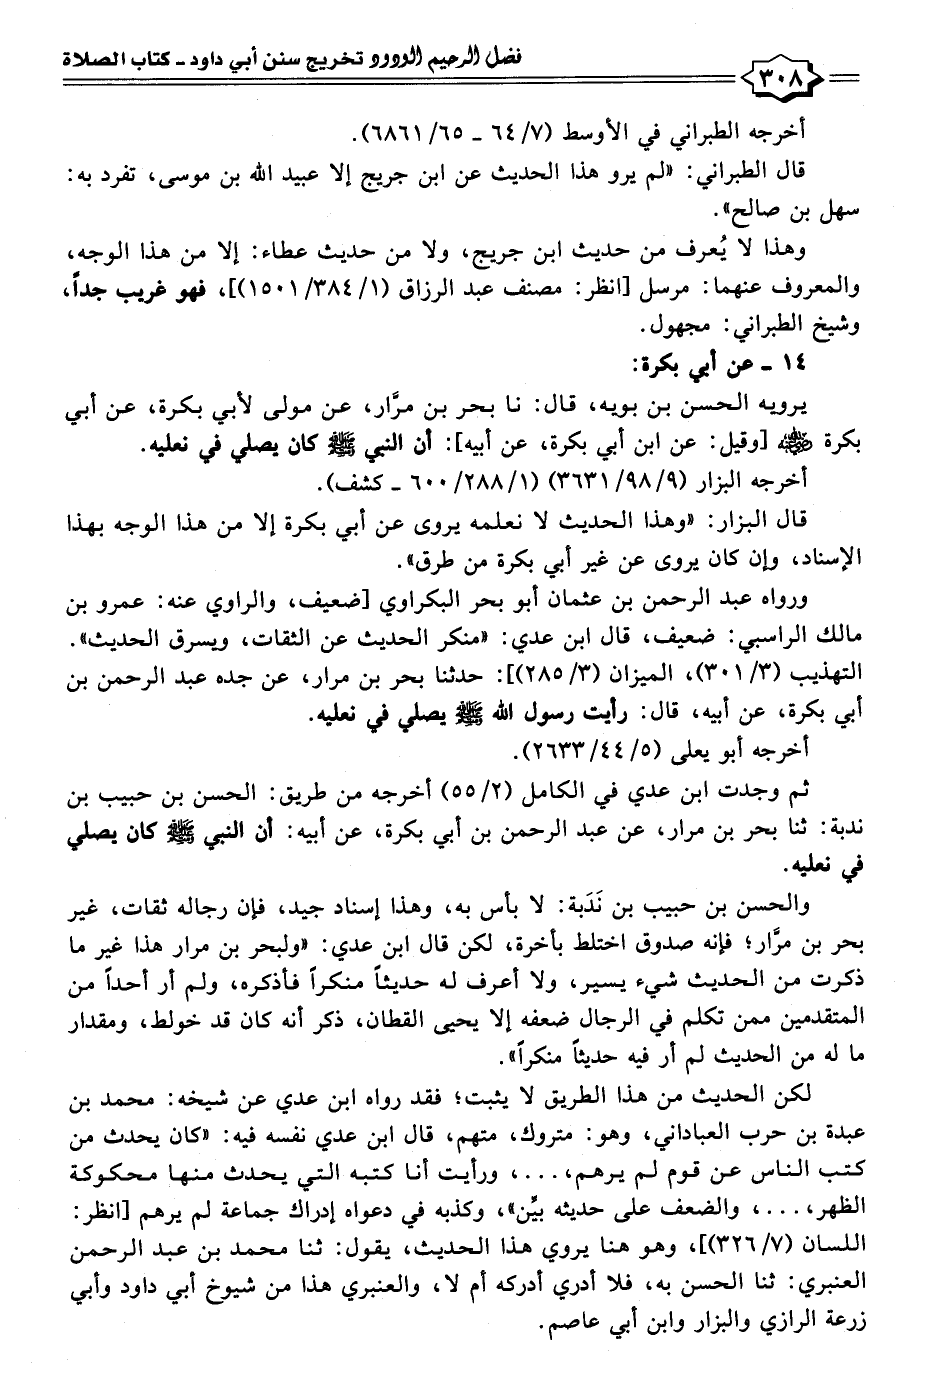 فضل الرحيم الودود تخريج سنن أبي داود - كتاب الصلاة
٣٠٨
أخرجه الطبراني في الأوسط (٧/ ٦٤ - ٦٥/ ٦٨٦١).
قال الطبراني: «لم يرو هذا الحديث عن ابن جريج إلا عبيد الله بن موسى، تفرد به:
سهل بن صالح».
وهذا لا يُعرف من حديث ابن جريج، ولا من حديث عطاء: إلا من هذا الوجه،
والمعروف عنهما: مرسل [انظر: مصنف عبد الرزاق (١/ ٣٨٤/ ١٥٠١)]، فهو غريب جداً،
وشيخ الطبراني: مجهول.
١٤ - عن أبي بكرة:
يرويه الحسن بن بويه، قال: نا بحر بن مرَّار، عن مولى لأبي بكرة، عن أبي
بكرة ﷺ [وقيل: عن ابن أبي بكرة، عن أبيه]: أن النبي ﷺ كان يصلي في نعليه.
أخرجه البزار (٩/ ٩٨/ ٣٦٣١) (١/ ٢٨٨/ ٦٠٠ - كشف).
قال البزار: «وهذا الحديث لا نعلمه يروى عن أبي بكرة إلا من هذا الوجه بهذا
الإسناد، وإن كان يروى عن غير أبي بكرة من طرق».
ورواه عبد الرحمن بن عثمان أبو بحر البكراوي [ضعيف، والراوي عنه: عمرو بن
مالك الراسبي: ضعيف، قال ابن عدي: «منكر الحديث عن الثقات، ويسرق الحديث».
التهذيب (٣/ ٣٠١)، الميزان (٣/ ٢٨٥)]: حدثنا بحر بن مرار، عن جده عبد الرحمن بن
أبي بكرة، عن أبيه، قال: رأيت رسول الله ﷺ يصلي في نعليه.
أخرجه أبو يعلى (٥/ ٤٤/ ٢٦٣٣).
ثم وجدت ابن عدي في الكامل (٢/ ٥٥) أخرجه من طريق: الحسن بن حبيب بن
ندبة: ثنا بحر بن مرار، عن عبد الرحمن بن أبي بكرة، عن أبيه: أن النبي ﷺ كان يصلي
في نعليه.
والحسن بن حبيب بن نَدَبة: لا بأس به، وهذا إسناد جيد، فإن رجاله ثقات، غير
بحر بن مرَّار؛ فإنه صدوق اختلط بأخرة، لكن قال ابن عدي: «ولبحر بن مرار هذا غير ما
ذكرت من الحديث شيء يسير، ولا أعرف له حديثاً منكراً فأذكره، ولم أر أحداً من
المتقدمين ممن تكلم في الرجال ضعفه إلا يحيى القطان، ذكر أنه كان قد خولط، ومقدار
ما له من الحديث لم أر فيه حديثاً منكراً».
لكن الحديث من هذا الطريق لا يثبت؛ فقد رواه ابن عدي عن شيخه: محمد بن
عبدة بن حرب العباداني، وهو: متروك، متهم، قال ابن عدي نفسه فيه: «كان يحدث من
كتب الناس عن قوم لم يرهم، ...، ورأيت أنا كتبه التي يحدث منها محكوكة
الظهر، ...، والضعف على حديثه بيِّن»، وكذبه في دعواه إدراك جماعة لم يرهم [انظر:
اللسان (٧/ ٣٢٦)]، وهو هنا يروي هذا الحديث، يقول: ثنا محمد بن عبد الرحمن
العنبري: ثنا الحسن به، فلا أدري أدركه أم لا، والعنبري هذا من شيوخ أبي داود وأبي
زرعة الرازي والبزار وابن أبي عاصم.